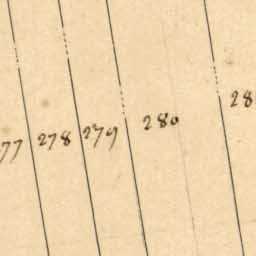 77 278 279 280 28